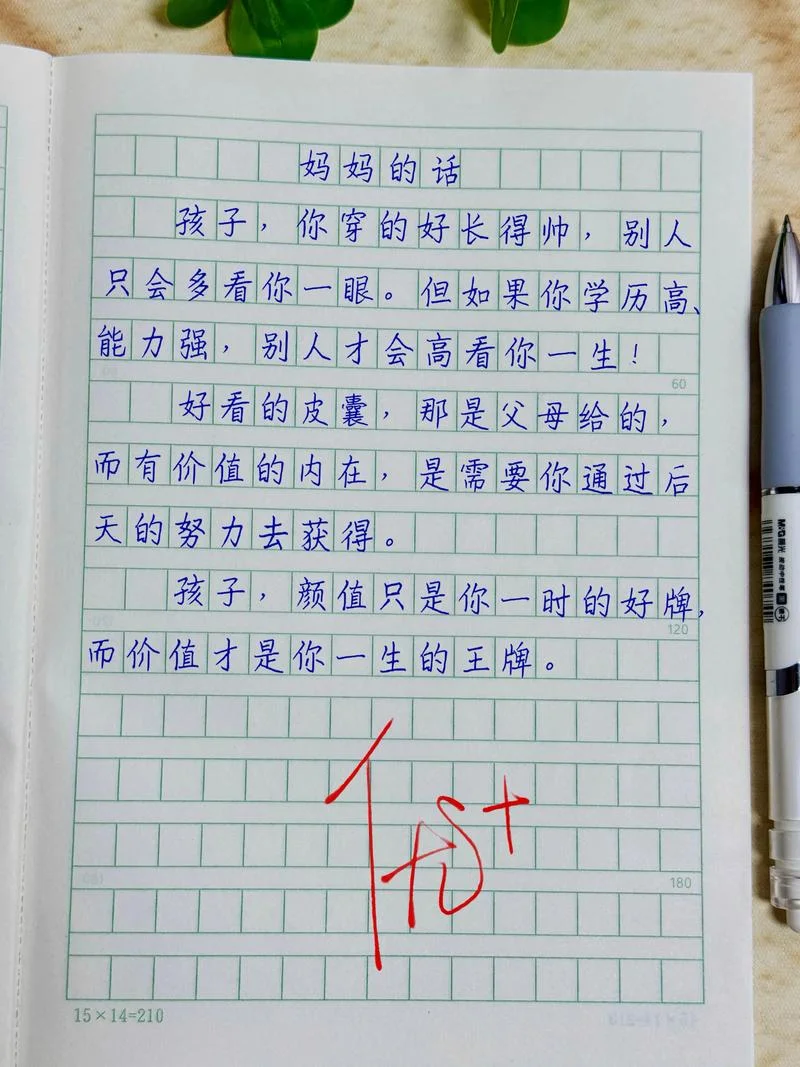 妈妈的话
孩子，你穿的好长得帅，别人
只会多看你一眼。但如果你学历高、
能力强，别人才会高看你一生！
60
好看的皮囊，那是父母给的，
而有价值的内在，是需要你通过后
天的努力去获得。
孩子，颜值只是你一时的好牌，
120
而价值才是你一生的王牌。
优+
180
15×14=210
M&G晨光